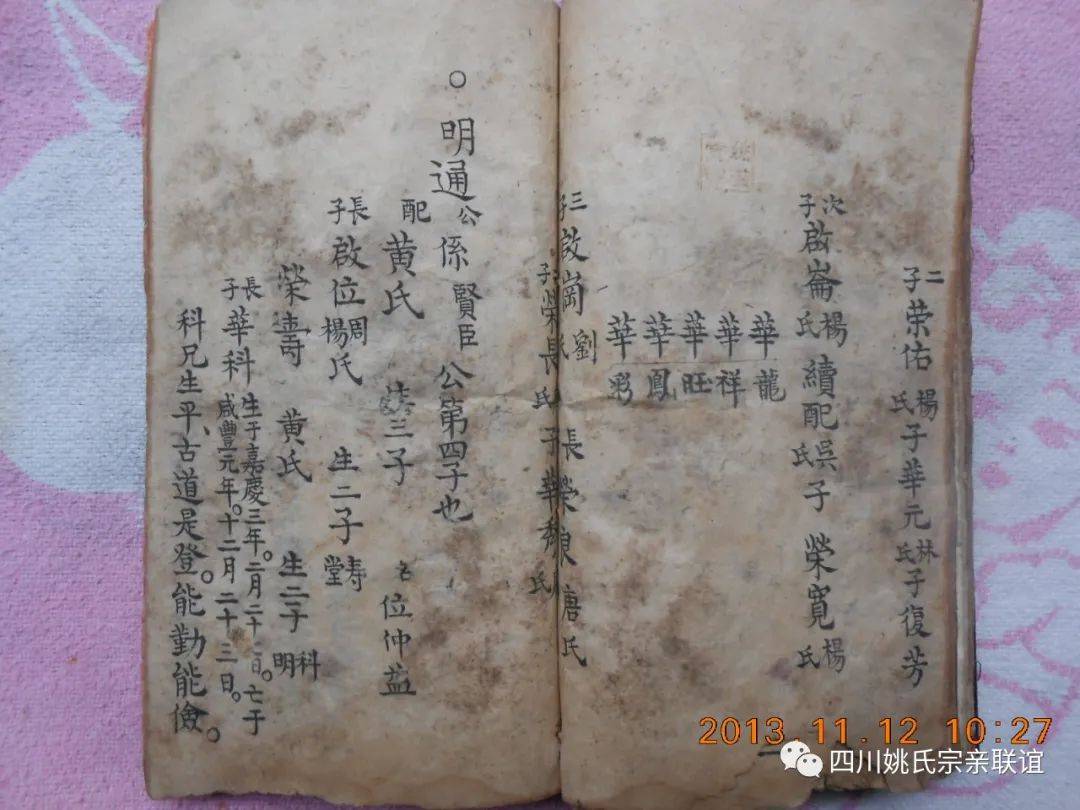 二子荣佑楊氏子華元林氏子復芳
次子啟崙楊氏續配吳氏子榮寬楊氏
華龍
華祥
華旺
華鳳
華彩
三子啟崗劉氏長榮 唐氏
子榮長氏子華 氏
○明通公係賢臣公第四子也
配黄氏 三子 名位仲益
長子啟位周楊氏生二子壽堂
榮壽黄氏生二子科明
長子華科生于嘉慶三年。二月二十 日。亡于咸豐元年。十二月二十三日。
科兄生平、古道是登。能勤能儉。
2013.11.12 10:27
四川姚氏宗亲联谊